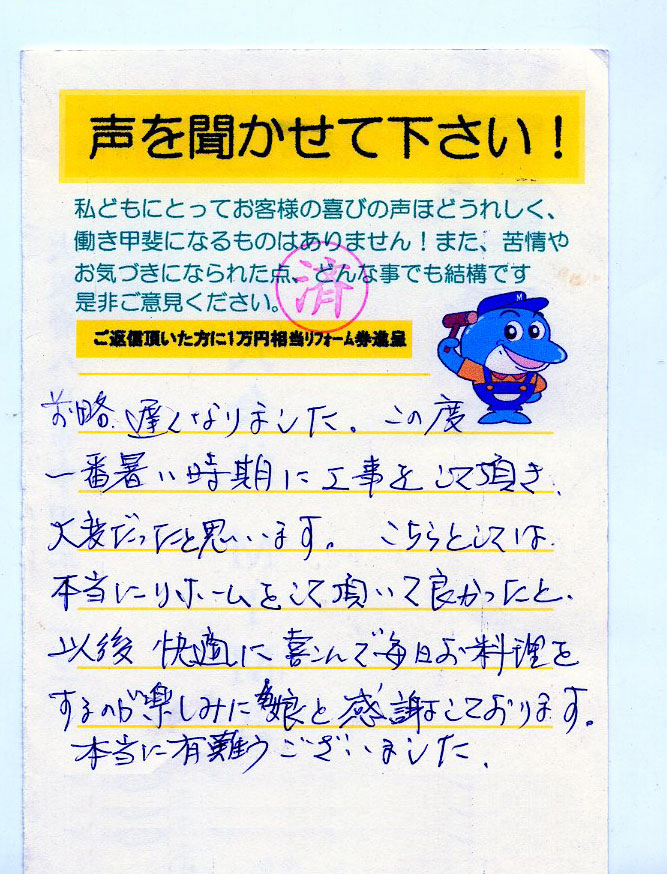 声を聞かせて下さい！
私どもにとってお客様の喜びの声ほどうれしく、
働き甲斐になるものはありません！また、苦情や
お気づきになられた点、どんな事でも結構です
是非ご意見ください。
済
ご返信頂いた方に1万円相当リフォーム券進呈
M
前略 遅くなりました。この度
一番暑い時期に工事をして頂き、
大変だったと思います。こちらとしては
本当にリホームをして頂いて良かったと、
以後快適に喜んで毎日お料理を
するのが楽しみに 娘と感謝しております。
本当に有難うございました。